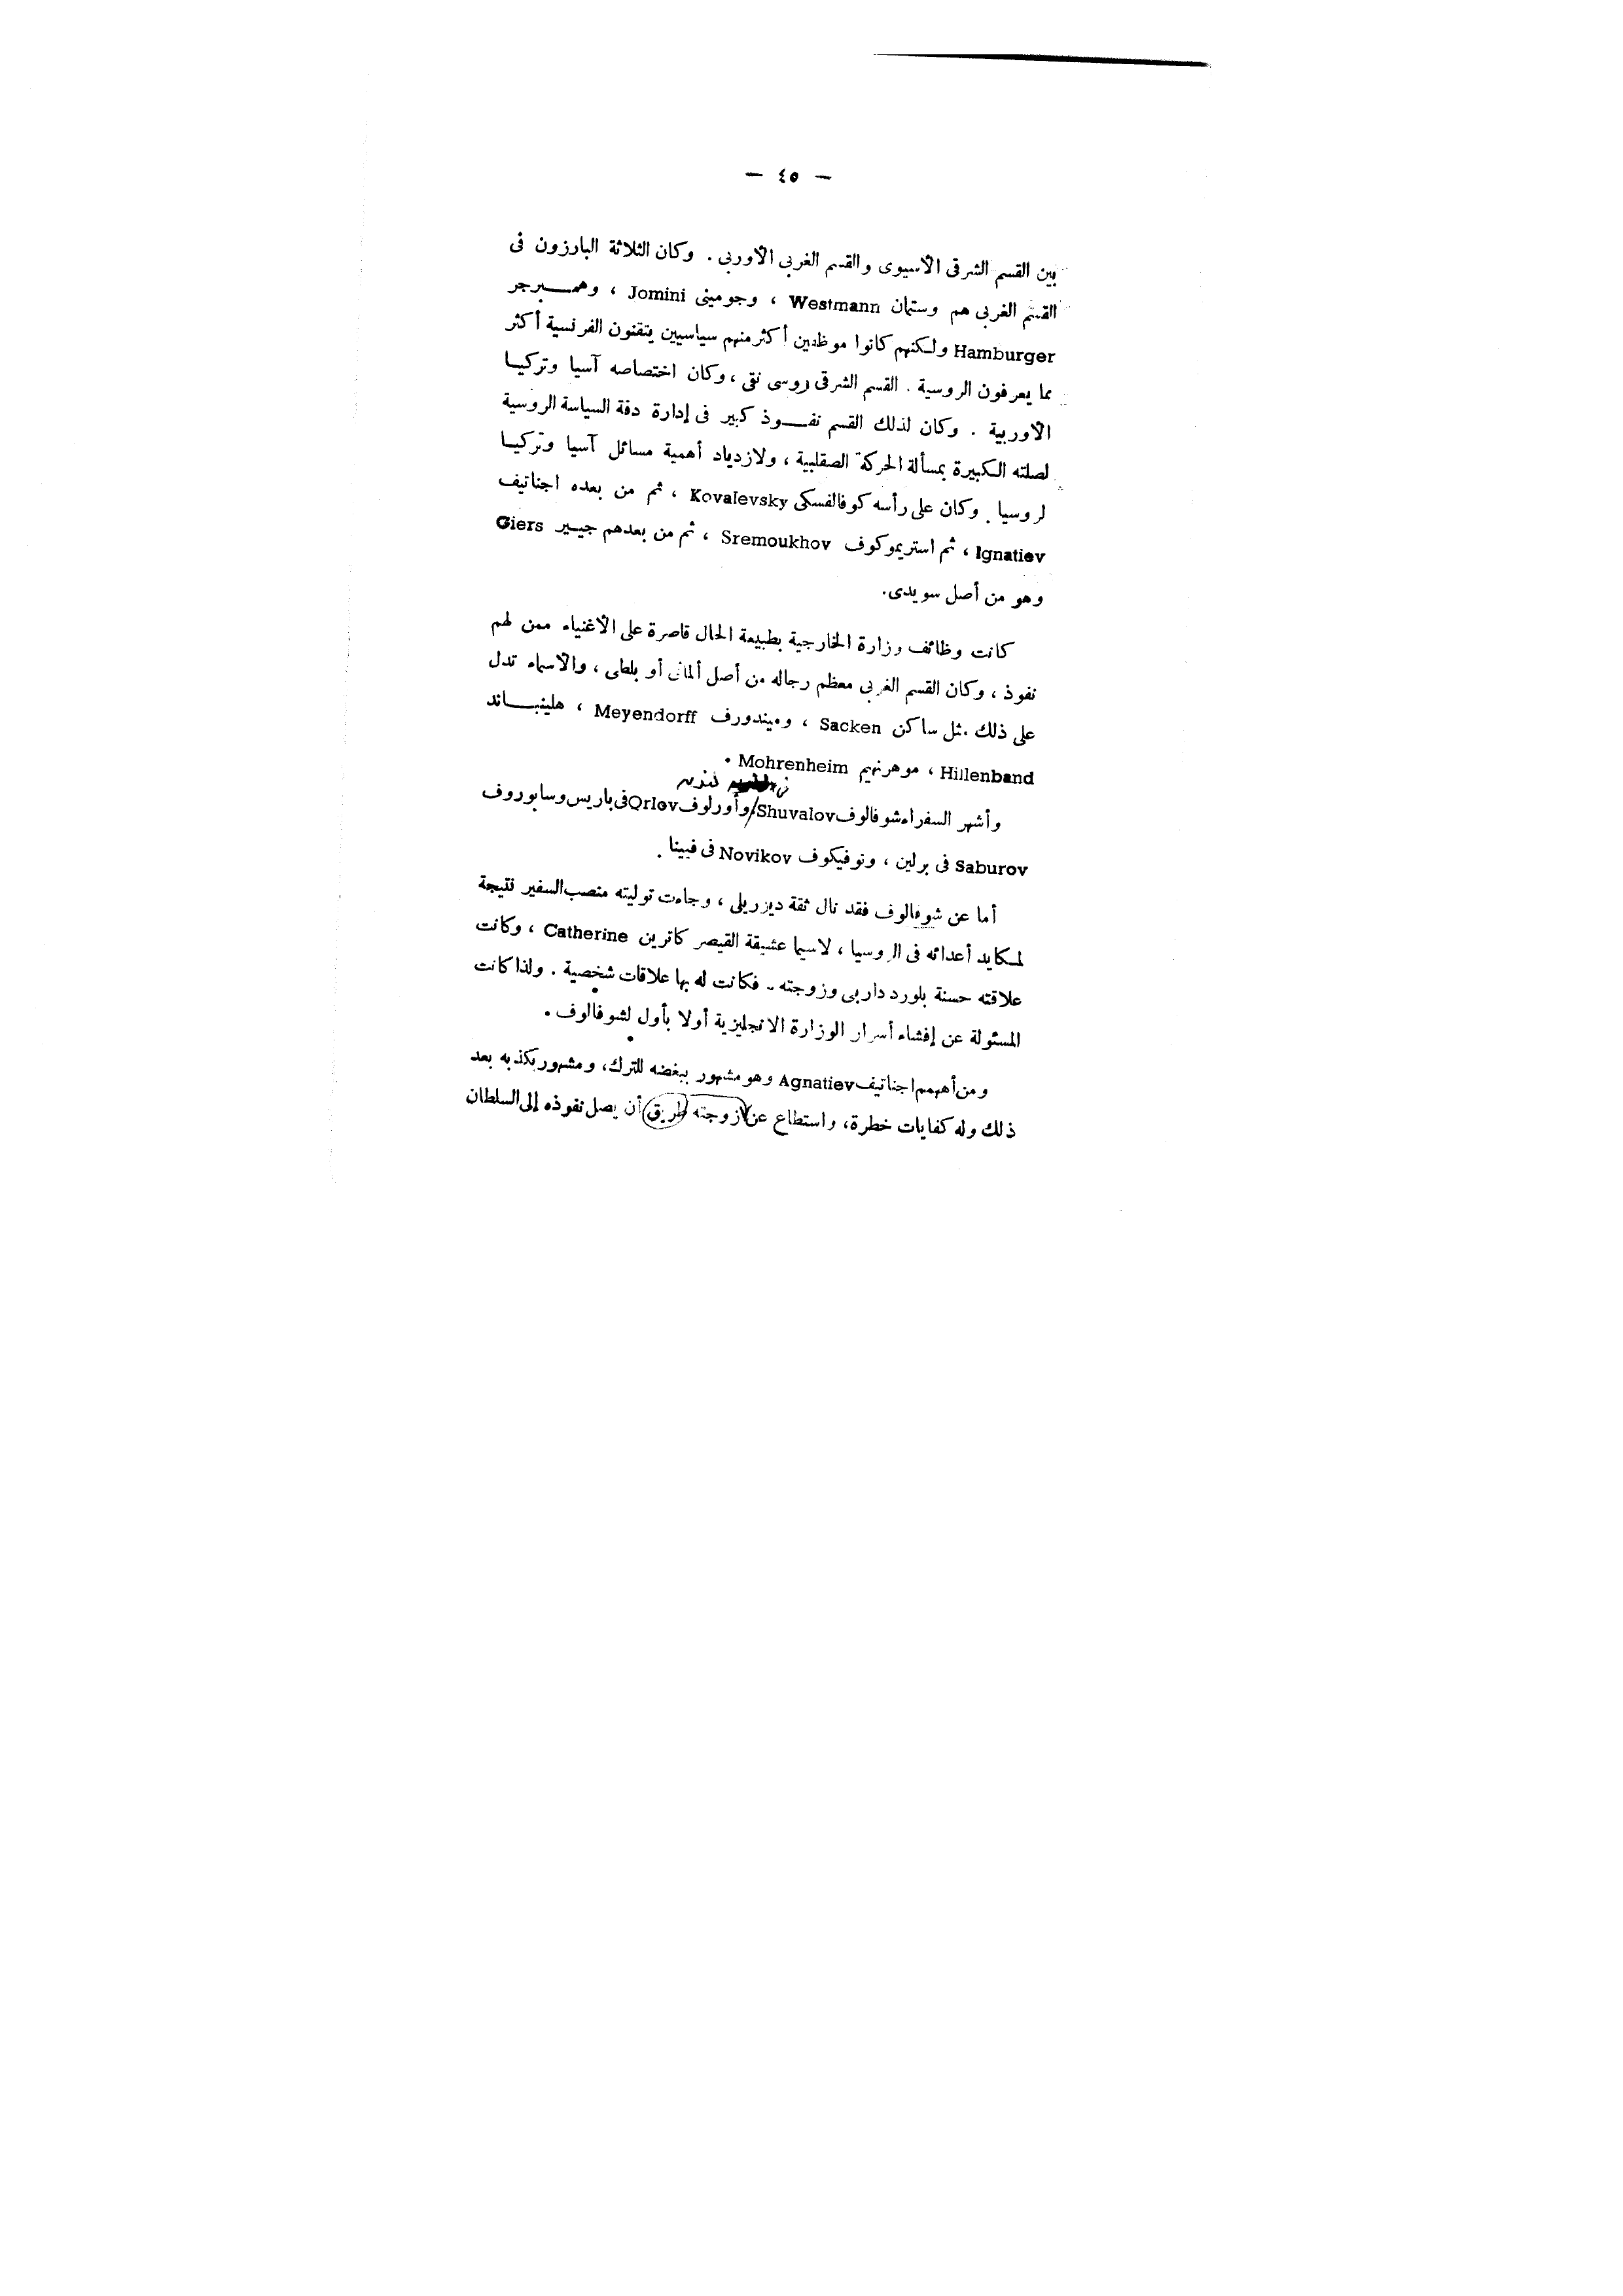 — ٤٥ —
بين القسم الشرقى الآسيوى والقسم الغربى الأوربى . وكان الثلاثة البارزون فى
القسم الغربى هم وستمان Westmann ، وجومينى Jomini ، وهمـــبرجر
Hamburger ولكنهم كانوا موظفين أكثر منهم سياسيين يتقنون الفرنسية أكثر
مما يعرفون الروسية . القسم الشرقى روسى نقى ، وكان اختصاصه آسيا وتركيــا
الأوربية . وكان لذلك القسم نفـــوذ كبير فى إدارة دفة السياسة الروسية
لصلته الكبيرة بمسألة الحركة الصقلبية ، ولازدياد أهمية مسائل آسيا وتركيــا
لروسيا . وكان على رأسه كوفالفسكى Kovalevsky ، ثم من بعده اجناتيف
Ignatiev ، ثم استريموكوف Sremoukhov ، ثم من بعدهم جيــير Giers
وهو من أصل سويدى .
كانت وظائف وزارة الخارجية بطبيعة الحال قاصرة على الأغنياء ممن لهم
نفوذ ، وكان القسم الغربى معظم رجاله من أصل ألمانى أو بلطى ، والأسماء تدل
على ذلك مثل ساكن Sacken ، وميندورف Meyendorff ، هلينبـــاند
Hillenband ، موهرنهيم Mohrenheim .
فى لندن
وأشهر السفراء شوفالوف Shuvalov / وأورلوف Orlov فى باريس وسابوروف
Saburov فى برلين ، ونوفيكوف Novikov فى فيينا .
أما عن شوفالوف فقد نال ثقة ديزريلى ، وجاءت توليته منصب السفير نتيجة
لمكايد أعدائه فى الروسيا ، لاسيما عشيقة القيصر كاترين Catherine ، وكانت
علاقته حسنة بلورد داربى وزوجته ـ فكانت له بها علاقات شخصية . ولذا كانت
المسئولة عن إفشاء أسرار الوزارة الانجليزية أولا بأول لشوفالوف .
ومن أهمهم اجناتيف Agnatiev وهو مشهور ببغضه للترك ، ومشهور بكذبه بعد
ذلك وله كفايات خطرة ، واستطاع عن زوجته طريق أن يصل نفوذه إلى السلطان